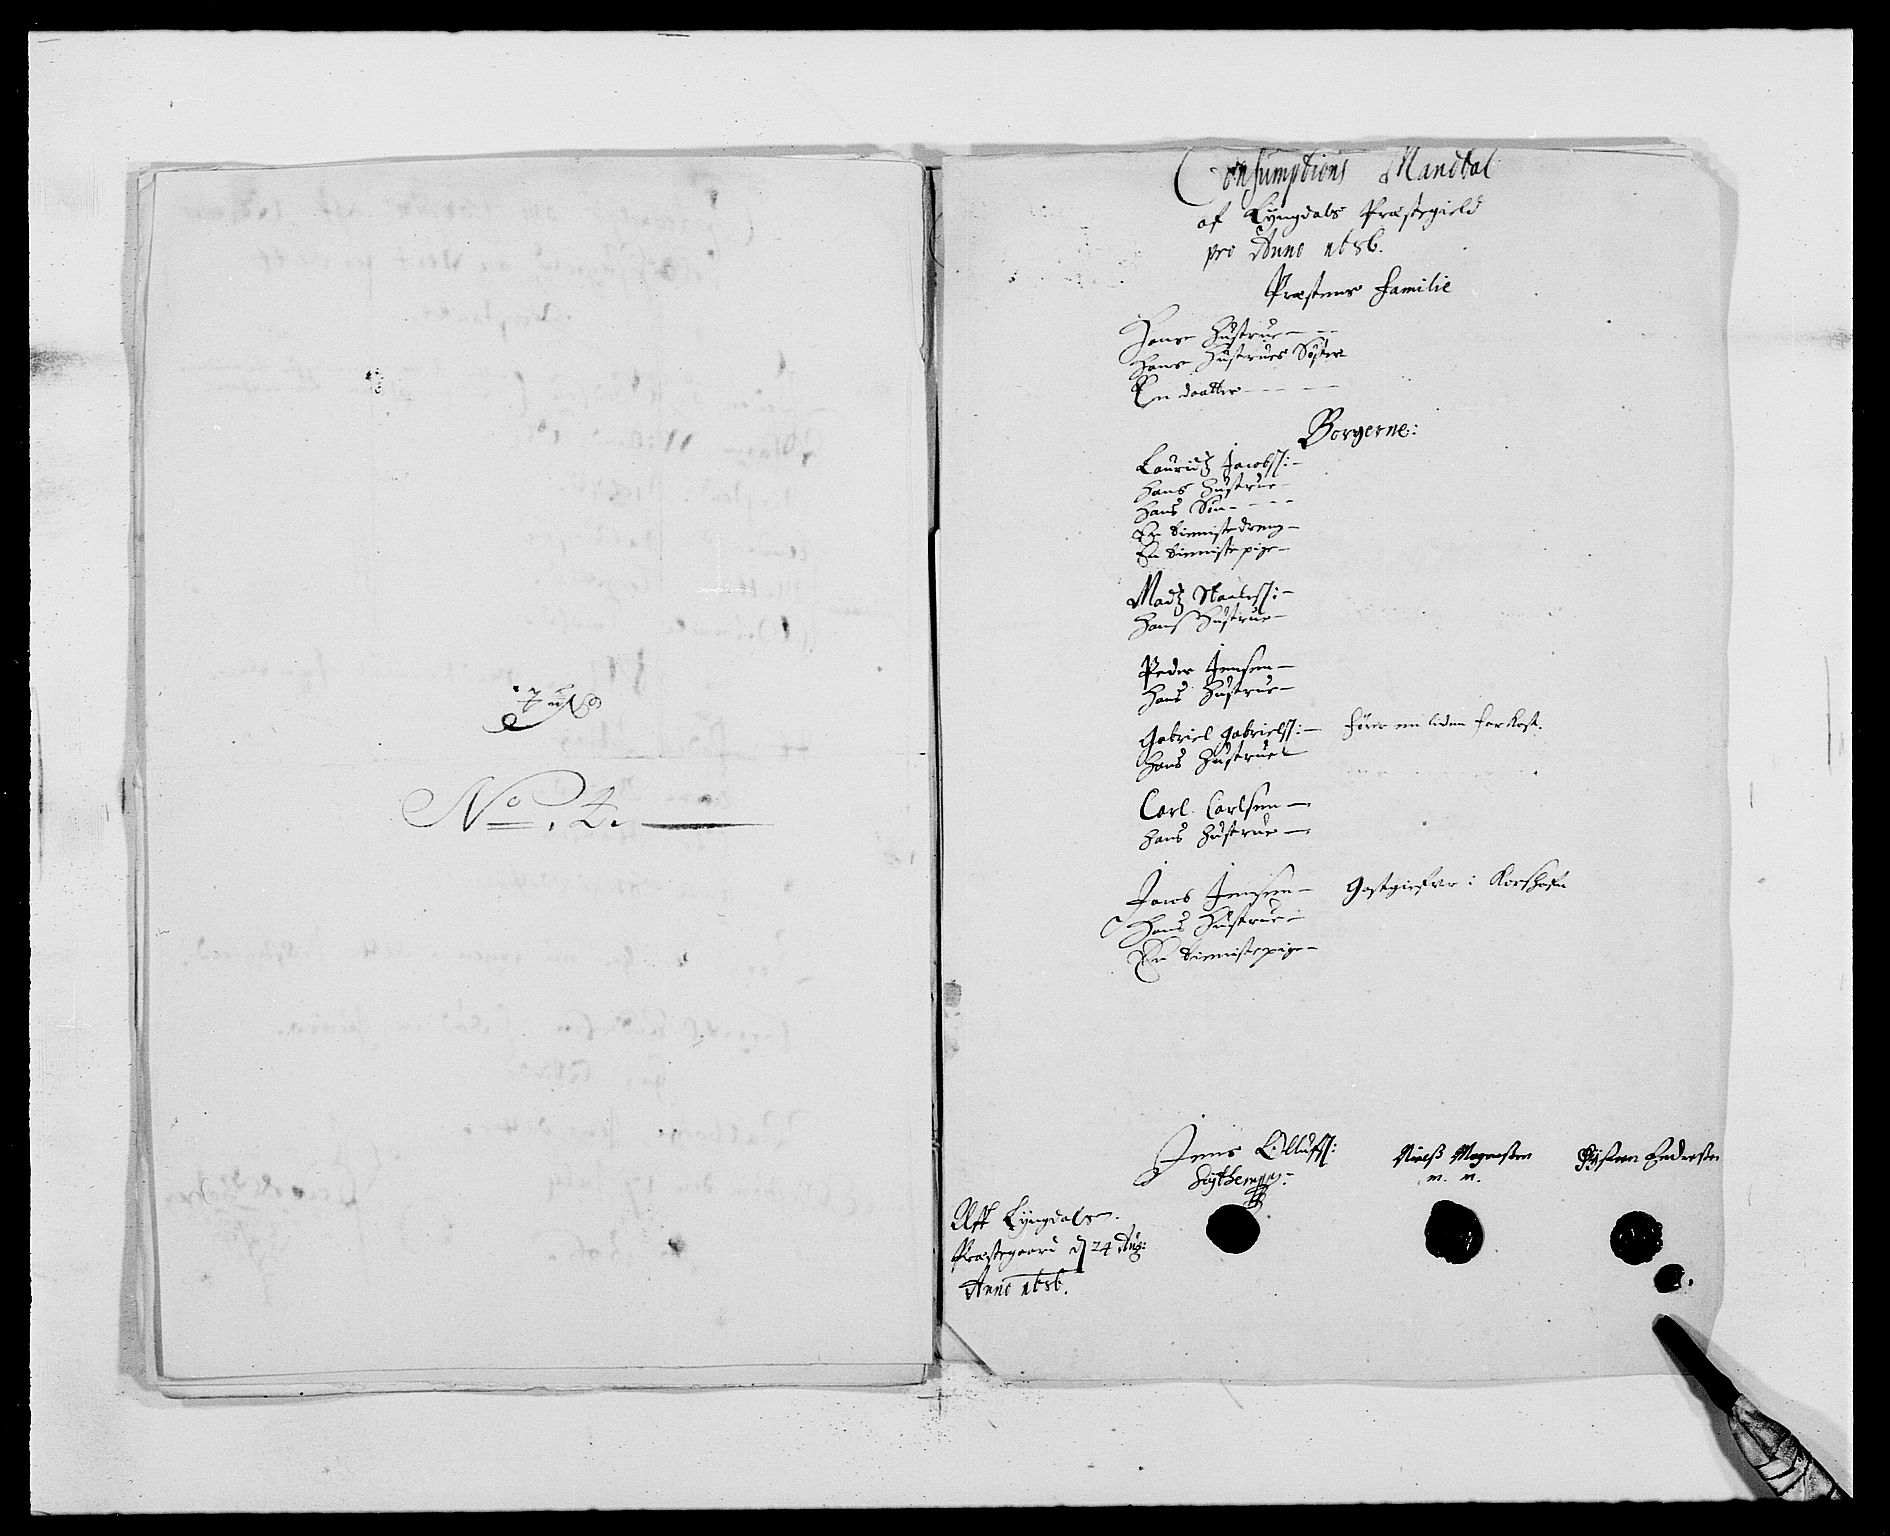 No. 2.
Consumptions Mandtal
af Lyngdals Præstegield
pro Anno 1686.
Præstens Familie
Hans Hustrue
Hans Hustrues Søster
En daatter
Borgerne:
Lauridz Jacobss:
Hans Hustrue
Hans Søn
En tienistedreng
En tienistepige
Madz Staaless:
Hans Hustrue
Peder Jensen
Hans Hustrue
Gabriel Gabrielss: fører en liden farkost.
Hans Hustrue
Carl Carlsen
Hans Hustrue
Jacob Jensen Gastgiefver i Korshafn
Hans Hustrue
En tienistepige
Jens Olluffs:
Niels Mogensen
Østen Endresen
m. n.
Aff Lyngdals
Præstegaard d 24 Aug:
Anno 1686.